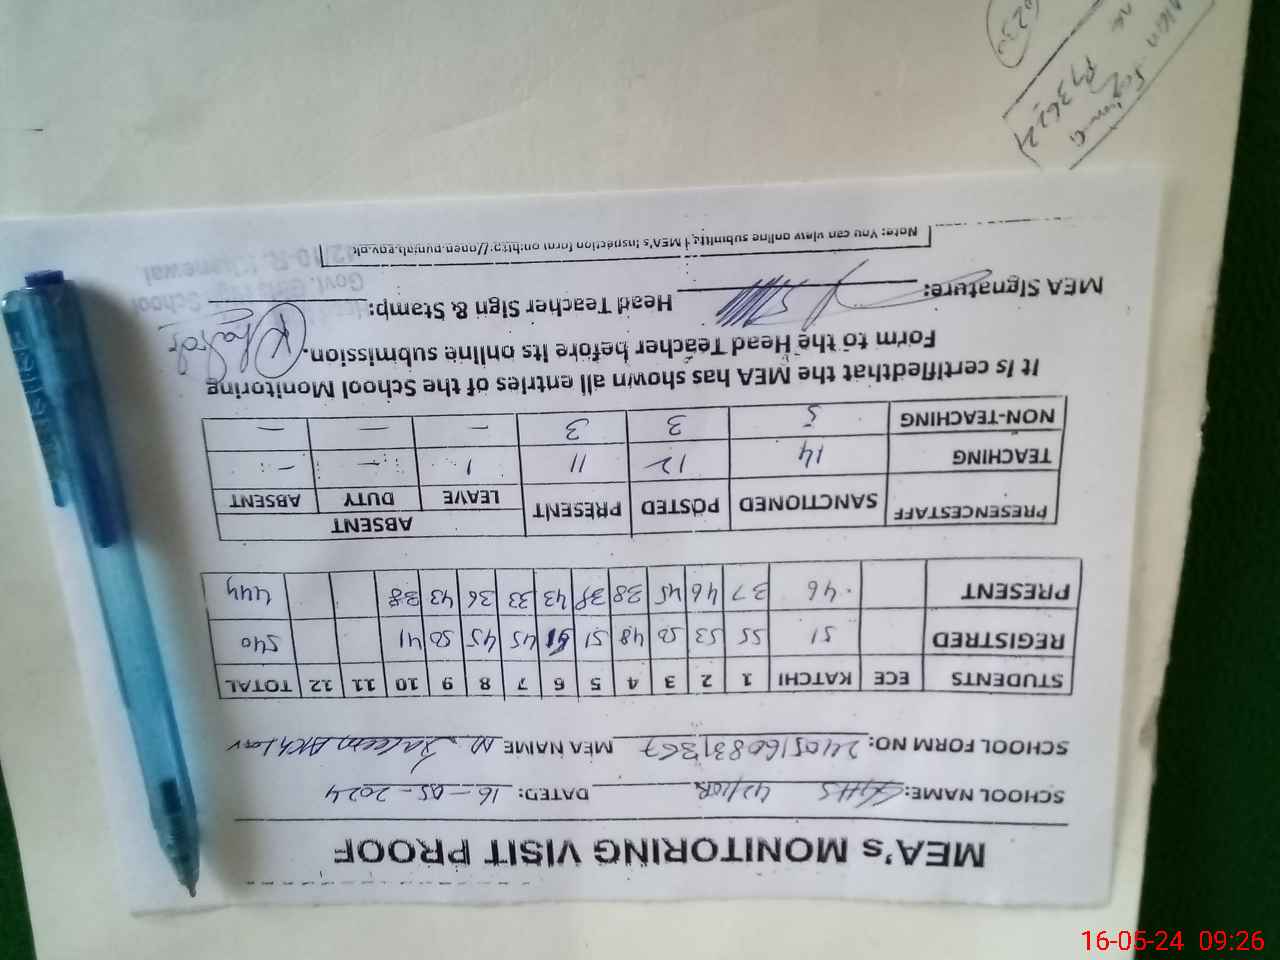 MEA's MONITORING VISIT PROOF
SCHOOL NAME: GGHS 42/10R DATED: 16-05-2024
SCHOOL FORM NO: MEA NAME M. Saleem Akhtar
STUDENTS ECE KATCHI 1 2 3 4 5 6 7 8 9 10 11 12 TOTAL
REGISTRED 51 55 53 50 48 51 51 45 45 50 41 540
PRESENT 46 37 46 45 38 38 43 33 36 43 38 444
PRESENCESTAFF SANCTIONED POSTED PRESENT ABSENT
LEAVE DUTY ABSENT
TEACHING 14 12 11 1 - -
NON-TEACHING 5 3 3 - - -
It is certifiedthat the MEA has shown all entries of the School Monitoring
Form to the Head Teacher before its online submission.
MEA Signature: Head Teacher Sign & Stamp:
Govt. School
42/10-R, Khanewal
Note: You can view online submitted MEA's inspection form on:http://open.punjab.gov.pk
16-05-24 09:26